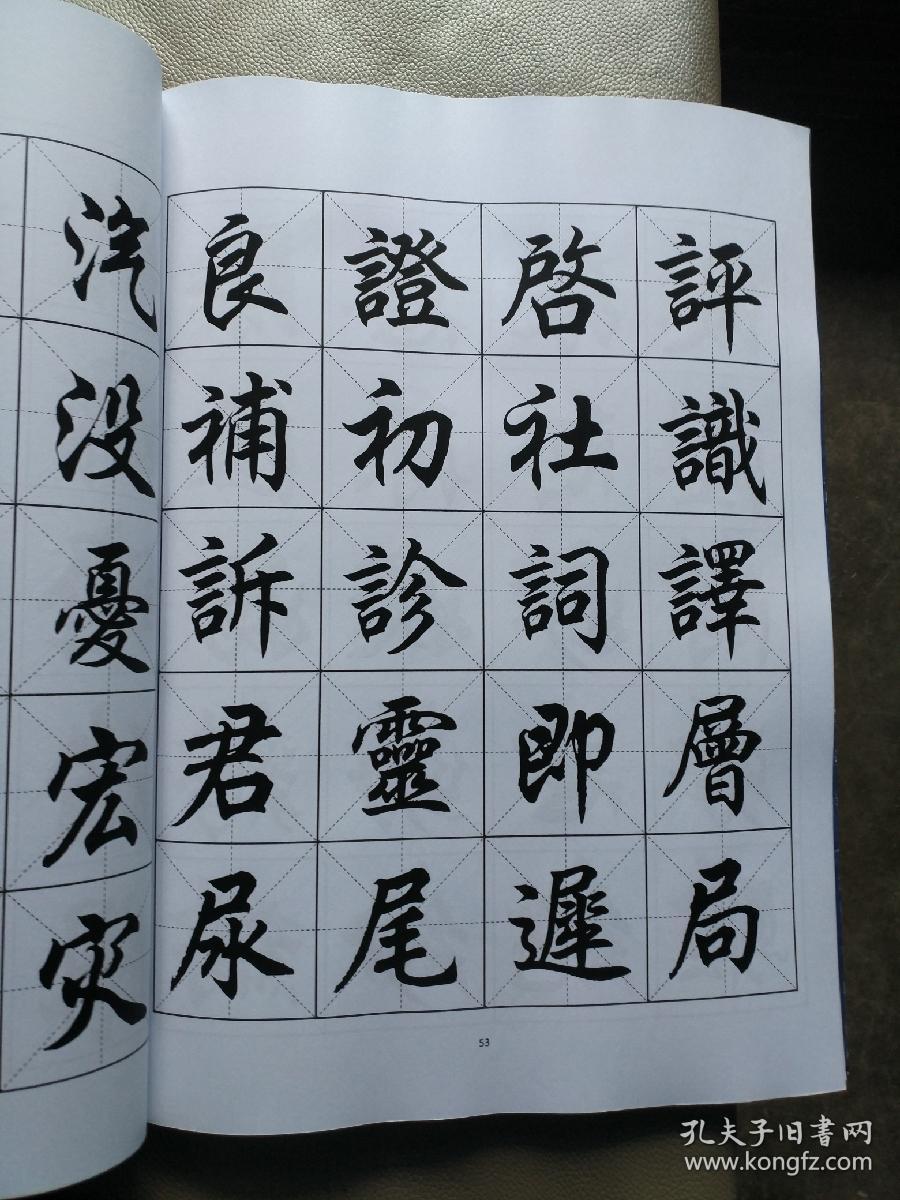 汽
没
憂
宏
灾
良證啓評
補初社識
訴診詞譯
君靈即層
尿尾遲局
53
孔夫子旧書网
www.kongfz.com